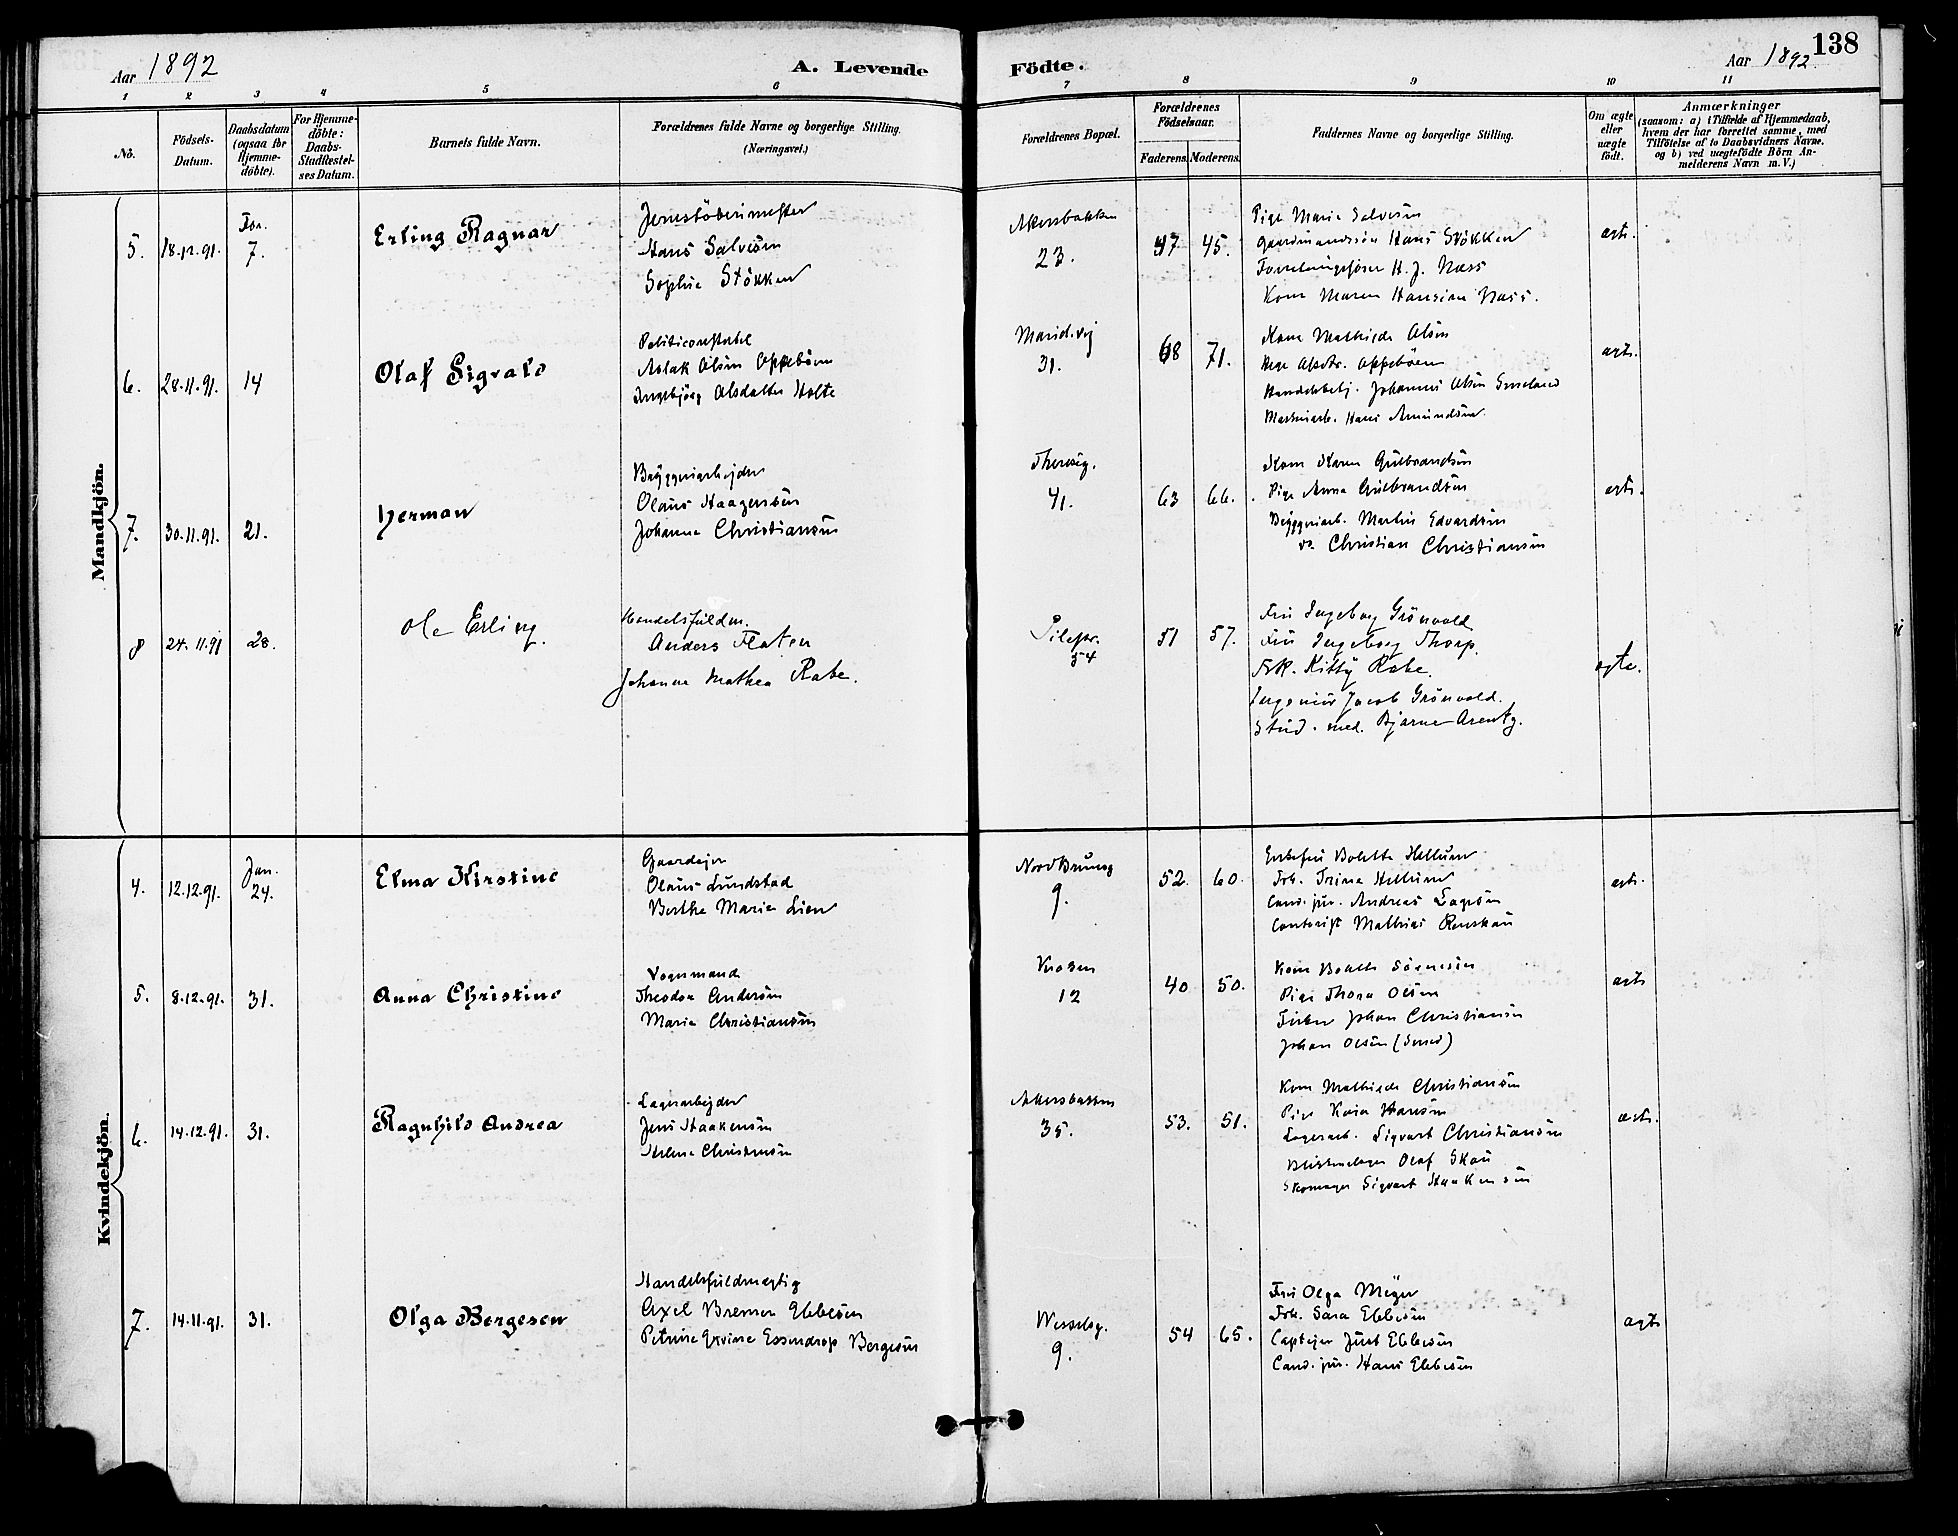 138
Aar 1892
A. Levende Födte.
Aar 1892
1 2 3 4 5 6 7 8 9 10 11
No.
Födsels-Datum.
Daabsdatum (ogsaa for Hjemme-döbte).
For Hjemme-döbte: Daabs-Stadfæstel-ses Datum.
Barnets fulde Navn.
Forældrenes fulde Navne og borgerlige Stilling.
(Næringsvei.)
Forældrenes Bopæl.
Forældrenes Födselsaar.
Faderens. Moderens.
Faddernes Navne og borgerlige Stilling.
Om ægte eller uægte født.
Anmærkninger
(saasom: a) i Tilfælde af Hjemmedaab,
hvem der har forrettet samme, med
Tilföielse af to Daabsvidners Navne.
og b) ved uægtefödte Börn An-
melderens Navn m. V.)
Mandkjön.
5. 18.12.91. 7. Erling Ragnar
Hans Salvesen
Sophie Stökken
23. 47 45.
Pige Marie Salvesen
Gaardmandssön Hans Stökken
H. J. Næss
Kone Maren Hansine Næss.
6. 28.11.91. 14 Olaf Sigvald
Politiconstabel
Aslak Olsen Oppebøen
Ingebjörg Olsdatter Holte
31. 68 71.
Kone Mathilde Olsen
Oppebøen
Johannes Olsen
Hans Amundsen
7. 30.11.91. 21. Herman
Bryggeriarbejder
Olaus Haagensen
Johanne Christiansen
41. 63 66.
Kone Karen Gulbrandsen
Pige Anna Gulbrandsen
Bryggeriarb. Martin Edvardsen
do. Christian Christiansen
8 24.11.91 28. Ole Erling.
Handelsfuldm.
Anders Floten
Johanne Mathea Rabe.
Pilestr.
54 51 57.
Fru Ingeborg Grönvold
Fru Ingeborg Thorp.
Frk. Kitty Rabe.
Ingeniör Jacob Grönvold.
Stud. med. Bjarne Arentz.
ægte.
Kvindekjön.
4. 12.12.91. Jan. 24. Elma Kirstine
Gaardejer
Olaus Lundstad
Berthe Marie Lien
9. 52. 60.
Enkefru Bolette Hellum
Frk. Trine Hellum
Cand. jur. Andreas
Mathias
5. 8.12.91. 31. Anna Christine
Vognmand
Theodor Andersen
Marie Christiansen
12 40 50.
Kone Bolette Sørensen
Pige Thora Olsen
Johan Christiansen
Johan Olsen (Smed)
6. 14.12.91. 31. Ragnhild Andrea
Lagerarbejder
Jens Haakensen
Helene Christensen
Akersbakken
35. 53. 51.
Kone Mathilde Christiansen
Pige Kaia Hansen
Lagerarb. Sigvart Christiansen
Olaf Skau
Skomager Sigvart Haakensen
7. 14.11.91. 31. Olga Bergesen
Handelsfuldmægtig
Axel Bremer Ebbesen
Petrine Essendrop Bergesen
Wesselsg.
9. 54 65.
Fru Olga Meyer
Frk. Sara Ebbesen
Just Ebbesen
Cand. jur. Hans Ebbesen